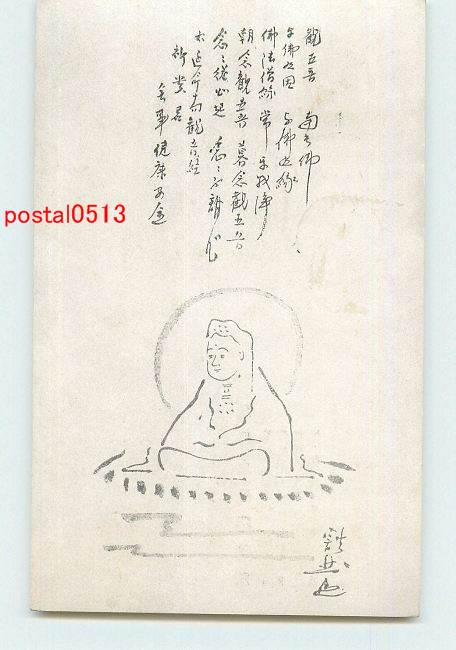 觀世音　南無佛
与佛有因　与佛有縁
佛法僧縁　常樂我淨
朝念觀世音　暮念觀世音
念念從心起　念念不離心
右延命十句觀音経
祈貴君
無事健康安全
postal0513